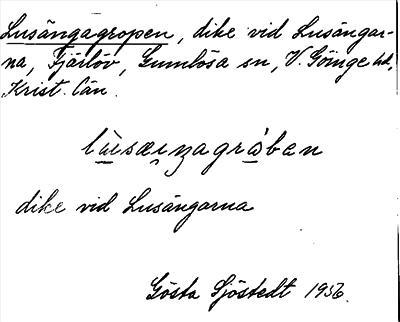 Lusängagropen, dike vid Lusängar-
na, Fjärlöv, Gumlösa sn, V. Göinge hd,
Krist. län.
lùsæŋagràban
dike vid Lusängarna
Gösta Sjöstedt 1956.